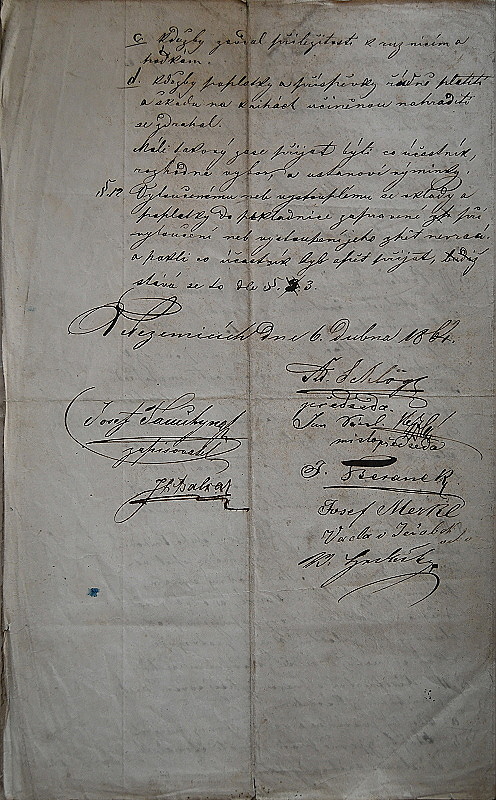 c. kdožby zavdal příležitosti k různicím a
hádkám.
d. kdožby poplatky a příspěvky řádně platiti
a škodu na knihách učiněnou nahraditi
se zdráhal.
Máli takový zase přijat býti co účastník,
rozhodne výbor, a ustanoví výminky.
§. 12 Vyloučenému neb vystouplému se vklady a
poplatky do pokladnice zapravené při
vyloučení neb vystoupení jeho zpět nevrací.
a pakli co účastník byl opět přijat, tedy
stává se to dle §. 3.
dne 6. dubna 186
Fr. Schlögl
předseda
Jan
místopředseda
Josef
zapisovatel
F. Beránek
Josef Merkl
Václav Jeřábek